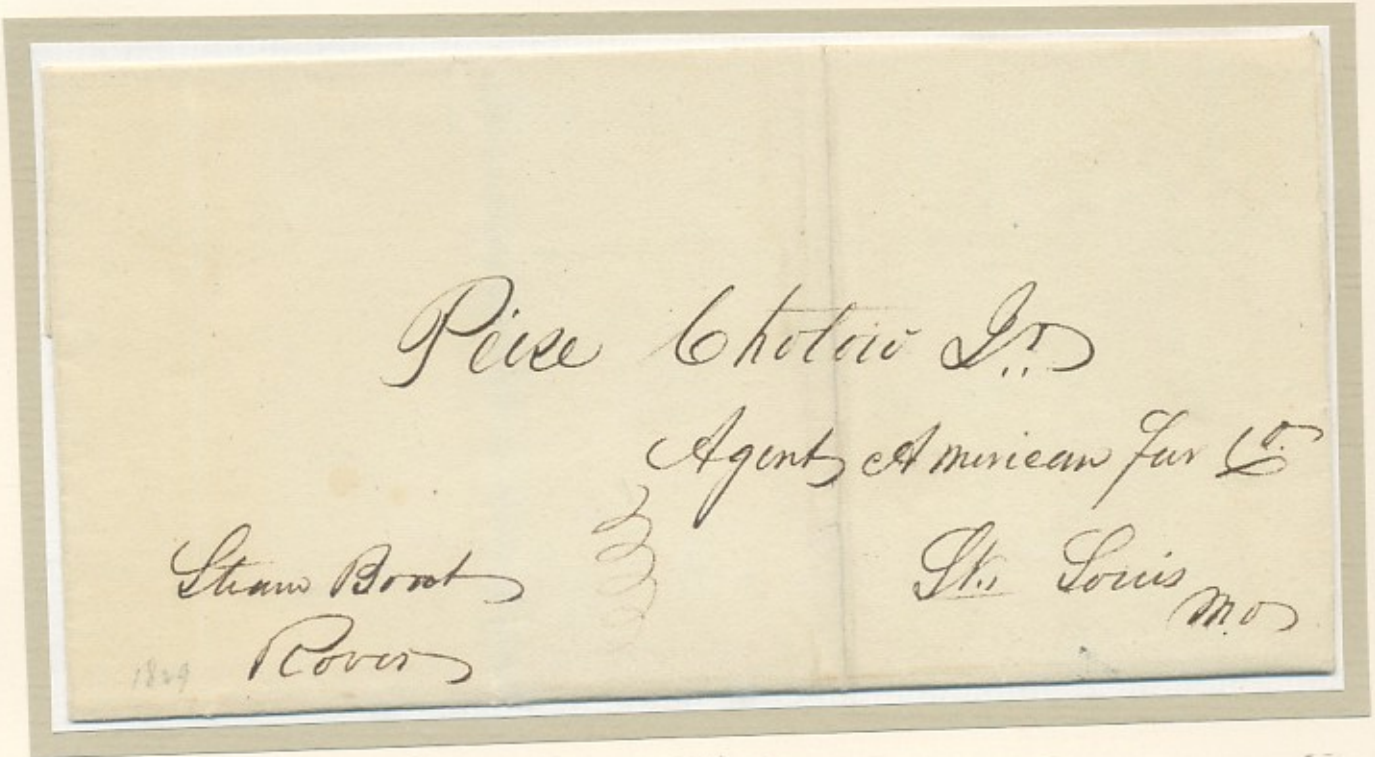 Peire Chotow Jr.
Agent American Fur Co.
St. Louis
Mo
Steam Boat
Rover
1829